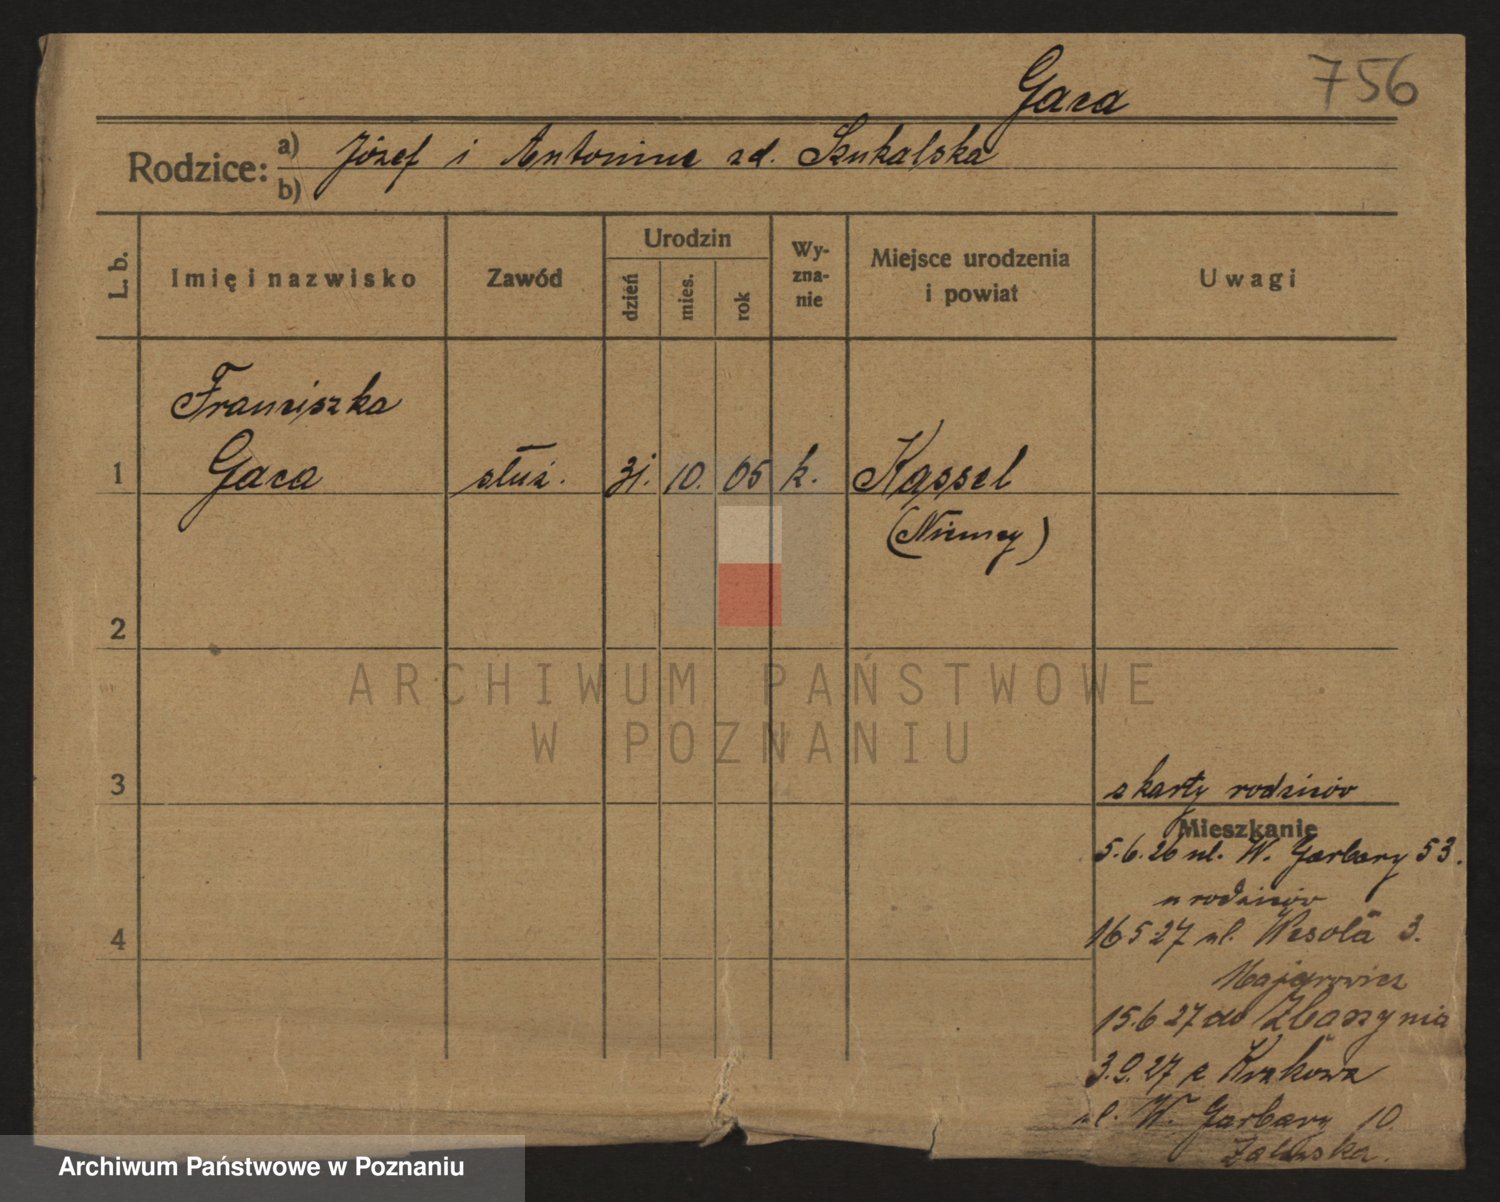 Gaca 756
Rodzice: a) Józef i Antonina zd. Szukalska
b)
L. b. Imię i nazwisko Zawód Urodzin dzień mies. rok Wy-zna-nie Miejsce urodzenia i powiat Uwagi
Franciszka
1 Gaca służ. 31. 10. 05 k. Kassel
(Niemcy)
2
ARCHIWUM PAŃSTWOWE
W POZNANIU
3 z karty rodziców
Mieszkanie
5.6.26 ul. W. Garbary 53.
u rodziców
4 16 5 27 ul. Wesoła 3.
15.6 27 do Zbąszynia
3.9.27 z Krakowa
ul. W. Garbary 10
Archiwum Państwowe w Poznaniu